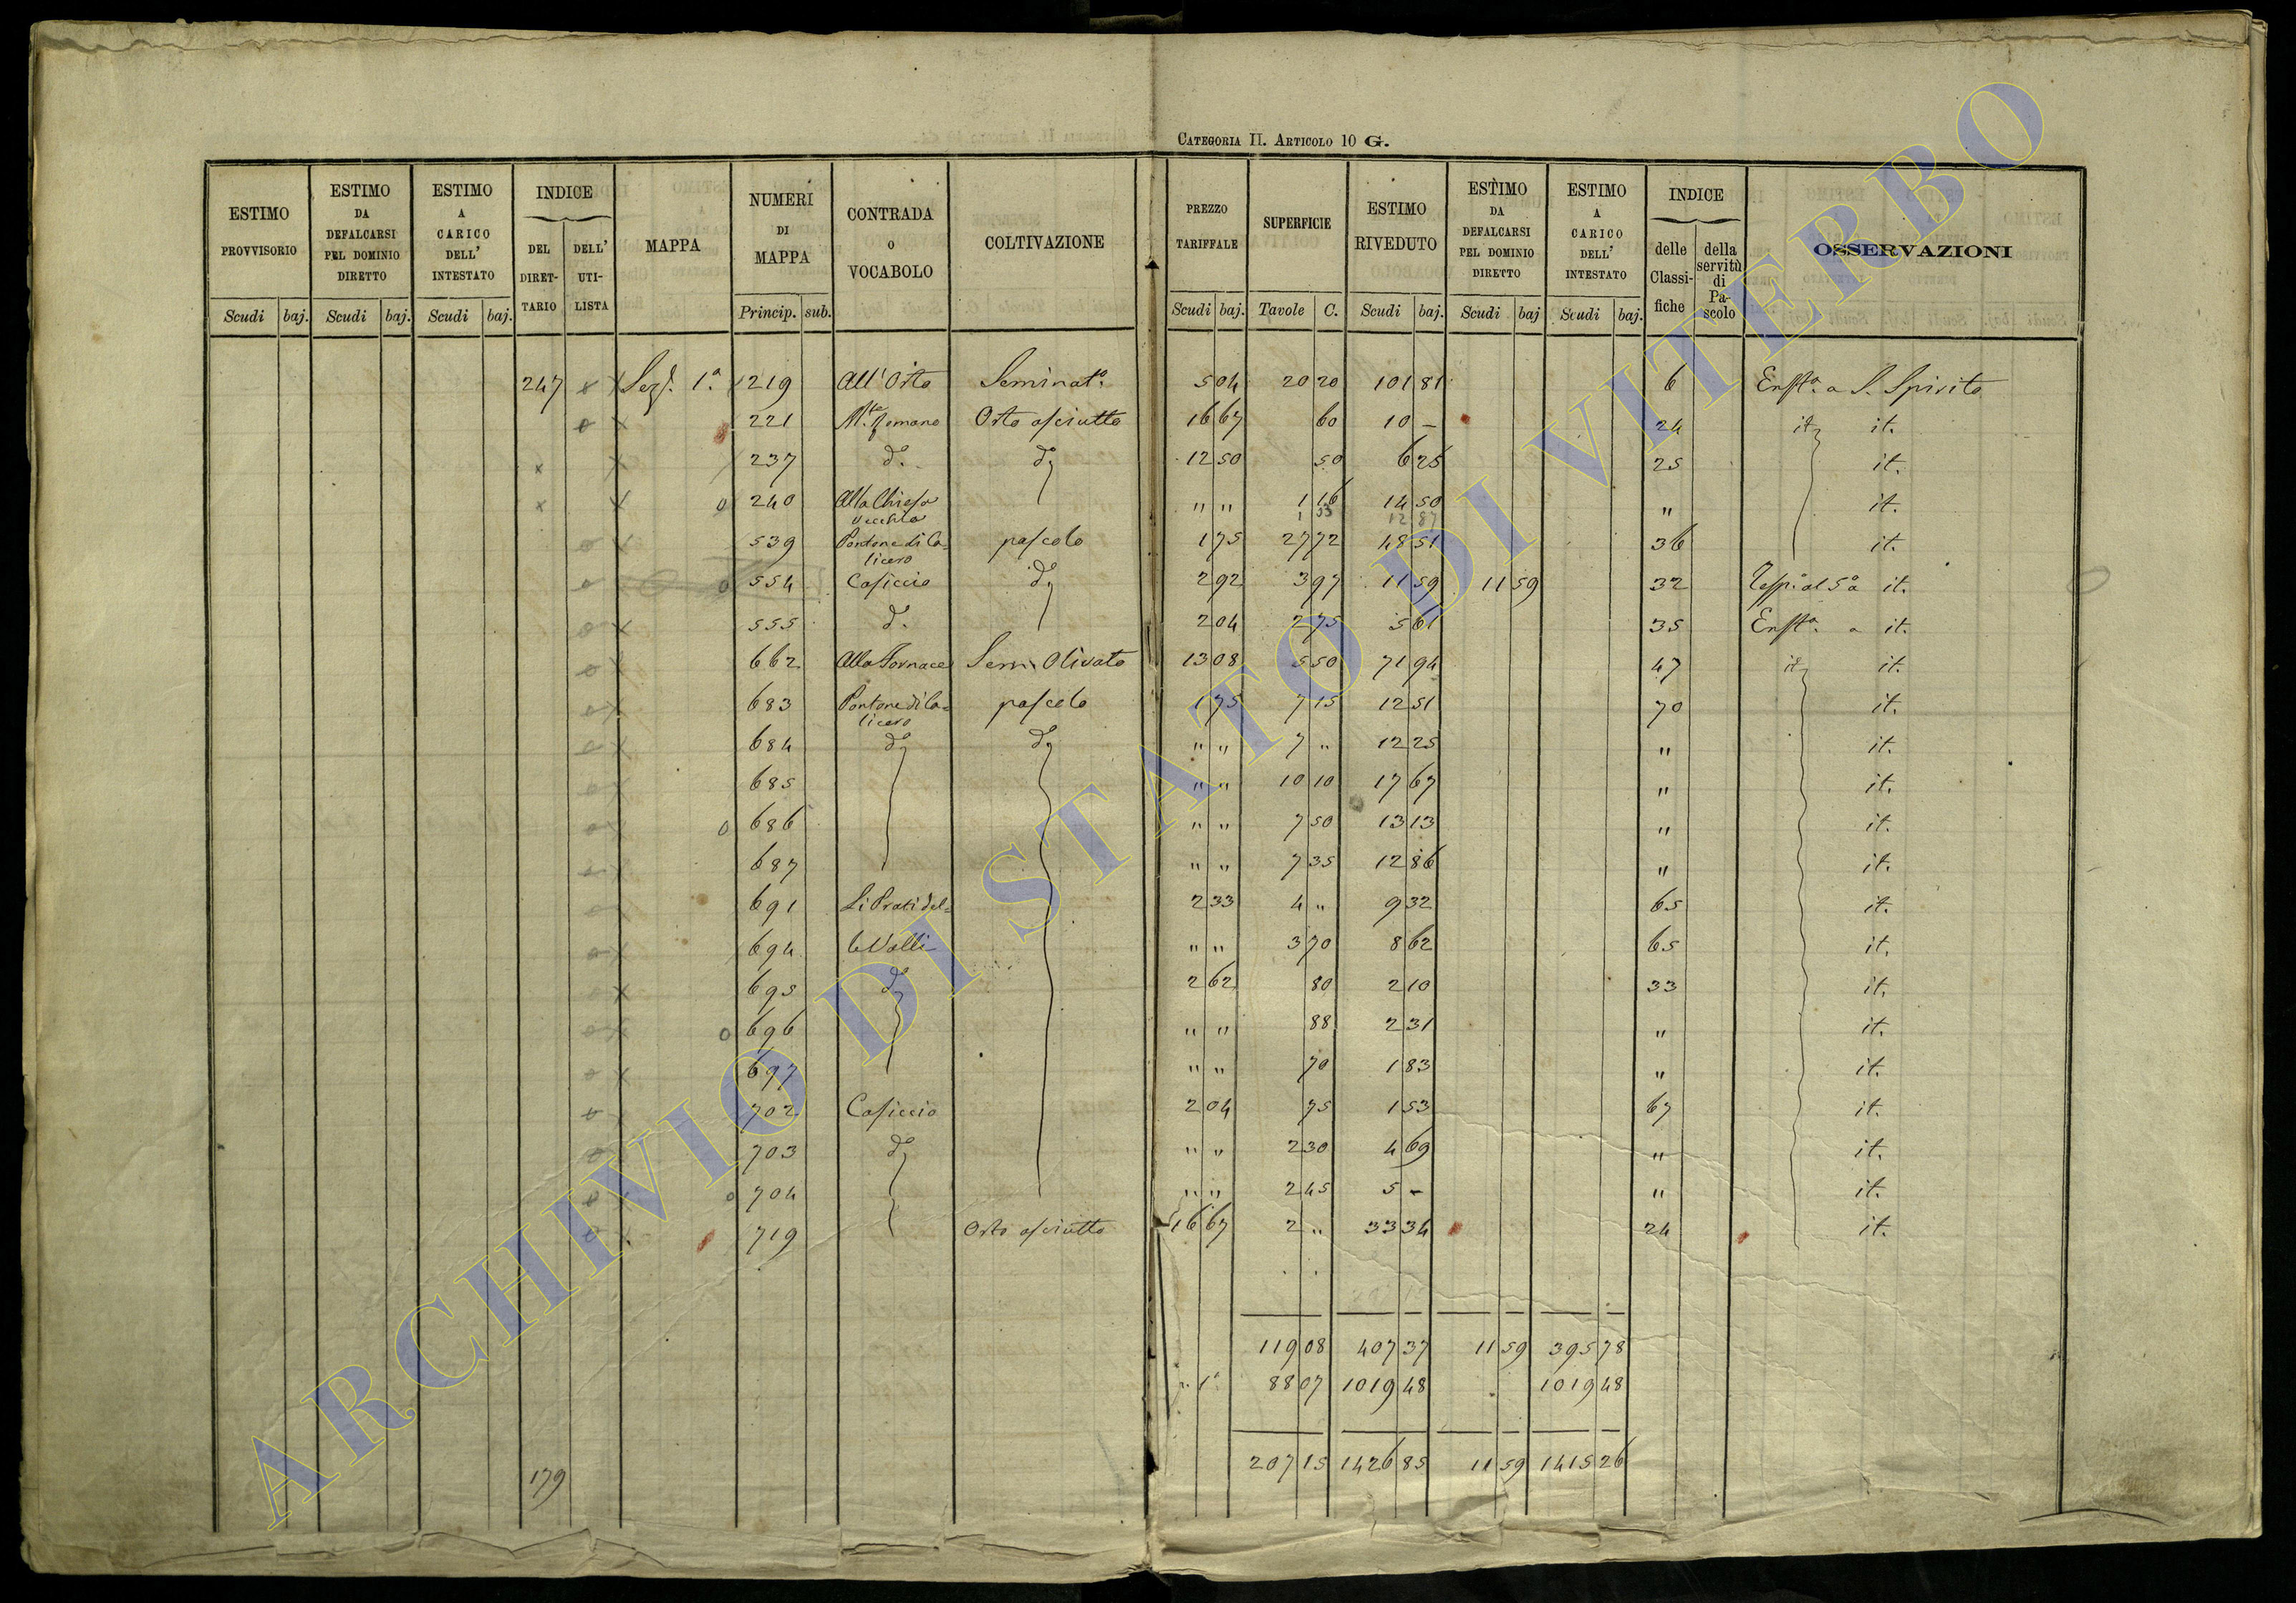 CATEGORIA II. ARTICOLO 10 G.
ESTIMO PROVVISORIO | ESTIMO DA DEFALCARSI PEL DOMINIO DIRETTO | ESTIMO A CARICO DELL' INTESTATO | INDICE | MAPPA | NUMERI DI MAPPA | CONTRADA O VOCABOLO | COLTIVAZIONE | PREZZO TARIFFALE | SUPERFICIE | ESTIMO RIVEDUTO | ESTIMO DA DEFALCARSI PEL DOMINIO DIRETTO | ESTIMO A CARICO DELL' INTESTATO | INDICE | OSSERVAZIONI
DEL DIRETTARIO | DELL' UTILISTA | delle Classifiche | della servitù di Pascolo
Scudi | baj. | Scudi | baj. | Scudi | baj. | Princip. | sub. | Scudi | baj. | Tavole | C. | Scudi | baj. | Scudi | baj | Scudi | baj.
247 x x Seze. 1a. 219 All'Orto Seminato. 5 04 20 20 101 81 6 Enfta. a S. Spirito
x 221 Mte. Romano Orto asciutto 16 67 60 10 — 24 id it.
x x 237 do. do 12 50 50 6 25 25 it.
x x 0 240 Alla Chiesa vecchia " " 1 16 14 50 " it.
1 33 12 87
x 539 Pontone di Calicero pascolo 1 75 27 72 48 51 36 it.
0 554 Casiccio do 2 92 3 97 11 59 11 59 32 al 5o a it.
x 555 do. 2 04 2 75 5 61 35 Enfta. a it.
x 662 Alla Fornace Semo Olivato 13 08 5 50 71 94 47 id it.
x 683 Pontone di Calicero pascolo 1 75 7 15 12 51 70 it.
x 684 do do " " 7 " 12 25 " it.
x 685 " " 10 10 17 67 " it.
x 0 686 " " 7 50 13 13 " it.
x 687 " " 7 35 12 86 " it.
691 Li Prati del= 2 33 4 " 9 32 65 it.
x 694 le Valli " " 3 70 8 62 65 it.
x 695 do 2 62 80 2 10 33 it.
x 0 696 " " 88 2 31 " it.
x 697 " " 70 1 83 " it.
702 Casiccio 2 04 75 1 53 67 it.
703 do " " 2 30 4 69 " it.
0 704 " " 2 45 5 — " it.
719 Orto asciutto 16 67 2 " 33 34 24 it.
119 08 407 37 11 59 395 78
1a 88 07 1019 48 1019 48
207 15 1426 85 11 59 1415 26
179
ARCHIVIO DI STATO DI VITERBO